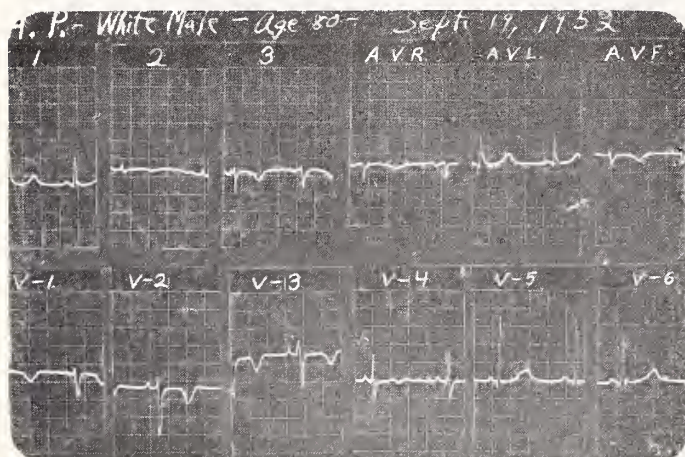 A. P. - White Male - Age 80 - Sept. 19, 1952
1 2 3 A.V.R. A.V.L. A.V.F.
V-1 V-2 V-3 V-4 V-5 V-6